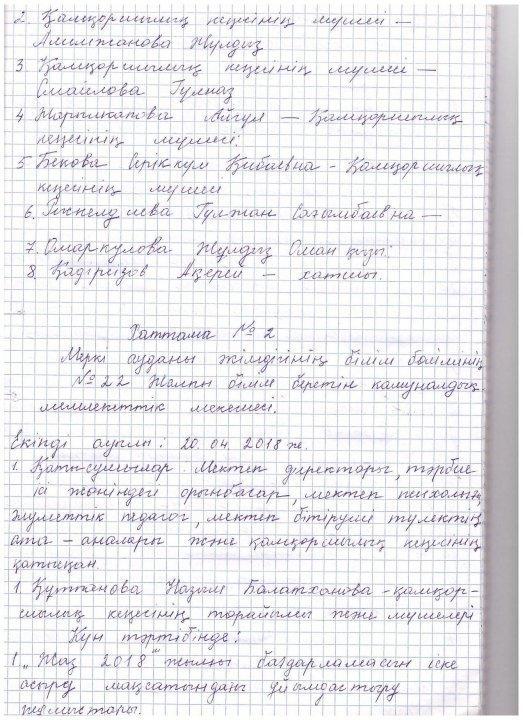 2. Қамқоршылық кеңесінің мүшесі —
Алимжанова Жұлдыз
3 Қамқоршылық кеңесінің мүшесі —
Смаилова Гүлназ
4 Айгүл — Қамқоршылық
кеңесінің мүшесі.
5 Бекова Серіккүл - Қамқоршылық
кеңесінің мүшесі
6. Гүлжан —
7. Омаркулова Жұлдыз Оман қызы.
8. Ақерке — хатшы.
Хаттама № 2
Меркі ауданы әкімдігінің білім бөлімінің
№ 22 Жалпы білім беретін коммуналдық
мемлекеттік мекемесі.
Екінді ауылы: 20.04 2018 ж.
1. Қатысушылар Мектеп директоры, тәрбие
ісі жөніндегі орынбасар, мектеп психологы,
әлуметтік педагог, мектеп бітіруші түлектің
ата – аналары және қамқоршылық кеңесінің
қатысқан.
1. Назым Балатханова - қамқор-
шылық кеңесінің төрайымы және мүшелері
Күн тәртібінде:
1. „Жаз 2018" жылғы бағдарламасын іске
асыру мақсатындағы ұйымдастыру
жұмыстары.